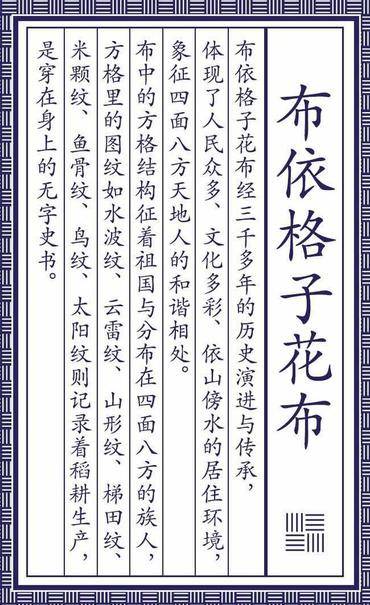 布依格子花布
布依格子花布经三千多年的历史演进与传承，
体现了人民众多、文化多彩、依山傍水的居住环境，
象征四面八方天地人的和谐相处。
布中的方格结构征着祖国与分布在四面八方的族人，
方格里的图纹如水波纹、云雷纹、山形纹、梯田纹、
米颗纹、鱼骨纹、鸟纹、太阳纹则记录着稻耕生产，
是穿在身上的无字史书。